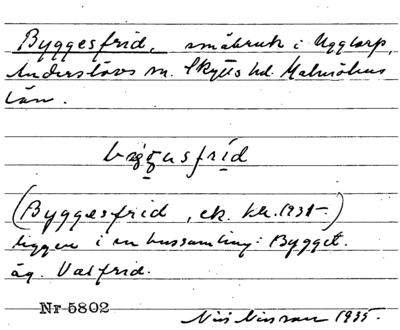 Byggesfrid, småbruk i Uggtorp,
Anderslövs sn. Skytts hd. Malmöhus
län.
byggusfrid
(Byggesfrid, ek. kb. 1931-)
ligger i en hussamling: Bygget.
äg. Valfrid.
Nr 5802
Nils Nilsson 1935.